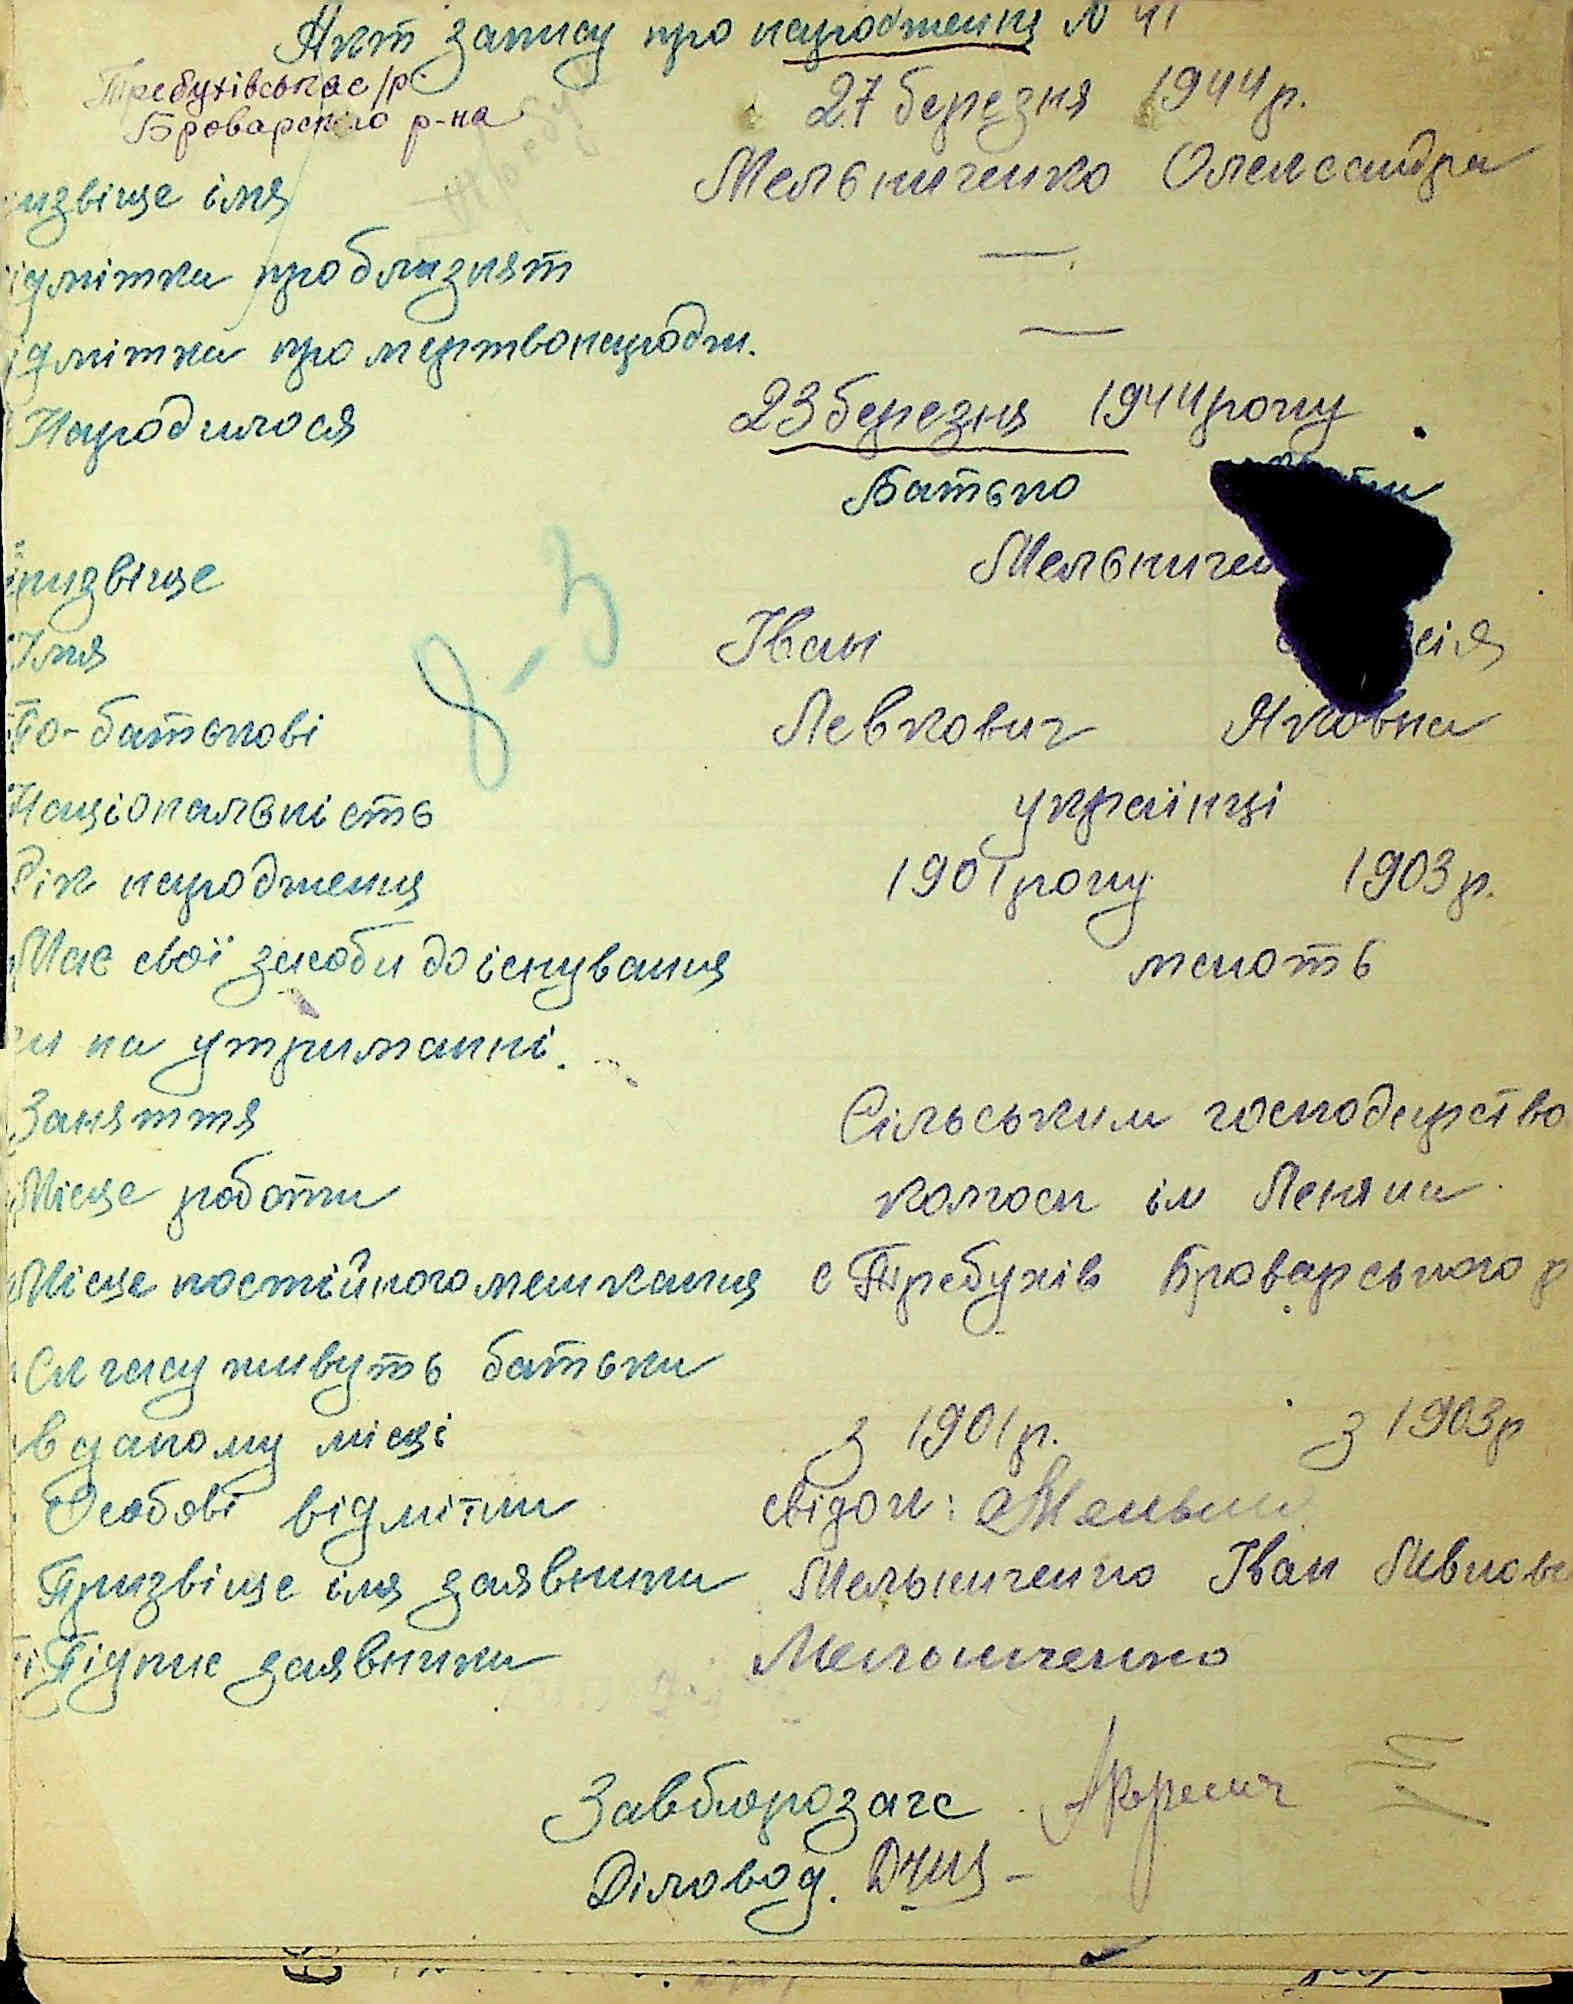 Акт запису про народження N 41
Требухівська с/р.
Броварського р-на
27 березня 1944 р.
ризвіще імя Мельниченко Олександра
ідмітка про близнят —
ідмітка про мертвонародж. —
Народилося 23 березня 1944 року
Батько
Призвіще Мельничен
Імя Іван сія
По-батькові Левкович Яковна
8-3
Національність українці
Рік народження 1901 року 1903 р.
Має свої засоби до існування мають
чи на утриманні.
Заняття Сільським господарство
Місце роботи колгосп ім Леніна
Місце постійного мешкання с Требухів Броварського р
С л часу живуть батьки
в даному місці з 1901 р. з 1903 р
Особові відмітки свідки:
Призвіще імя заявника Мельниченко Іван Левкови
Підпис заявника Мельниченко
Завбюрозагс
Діловод.